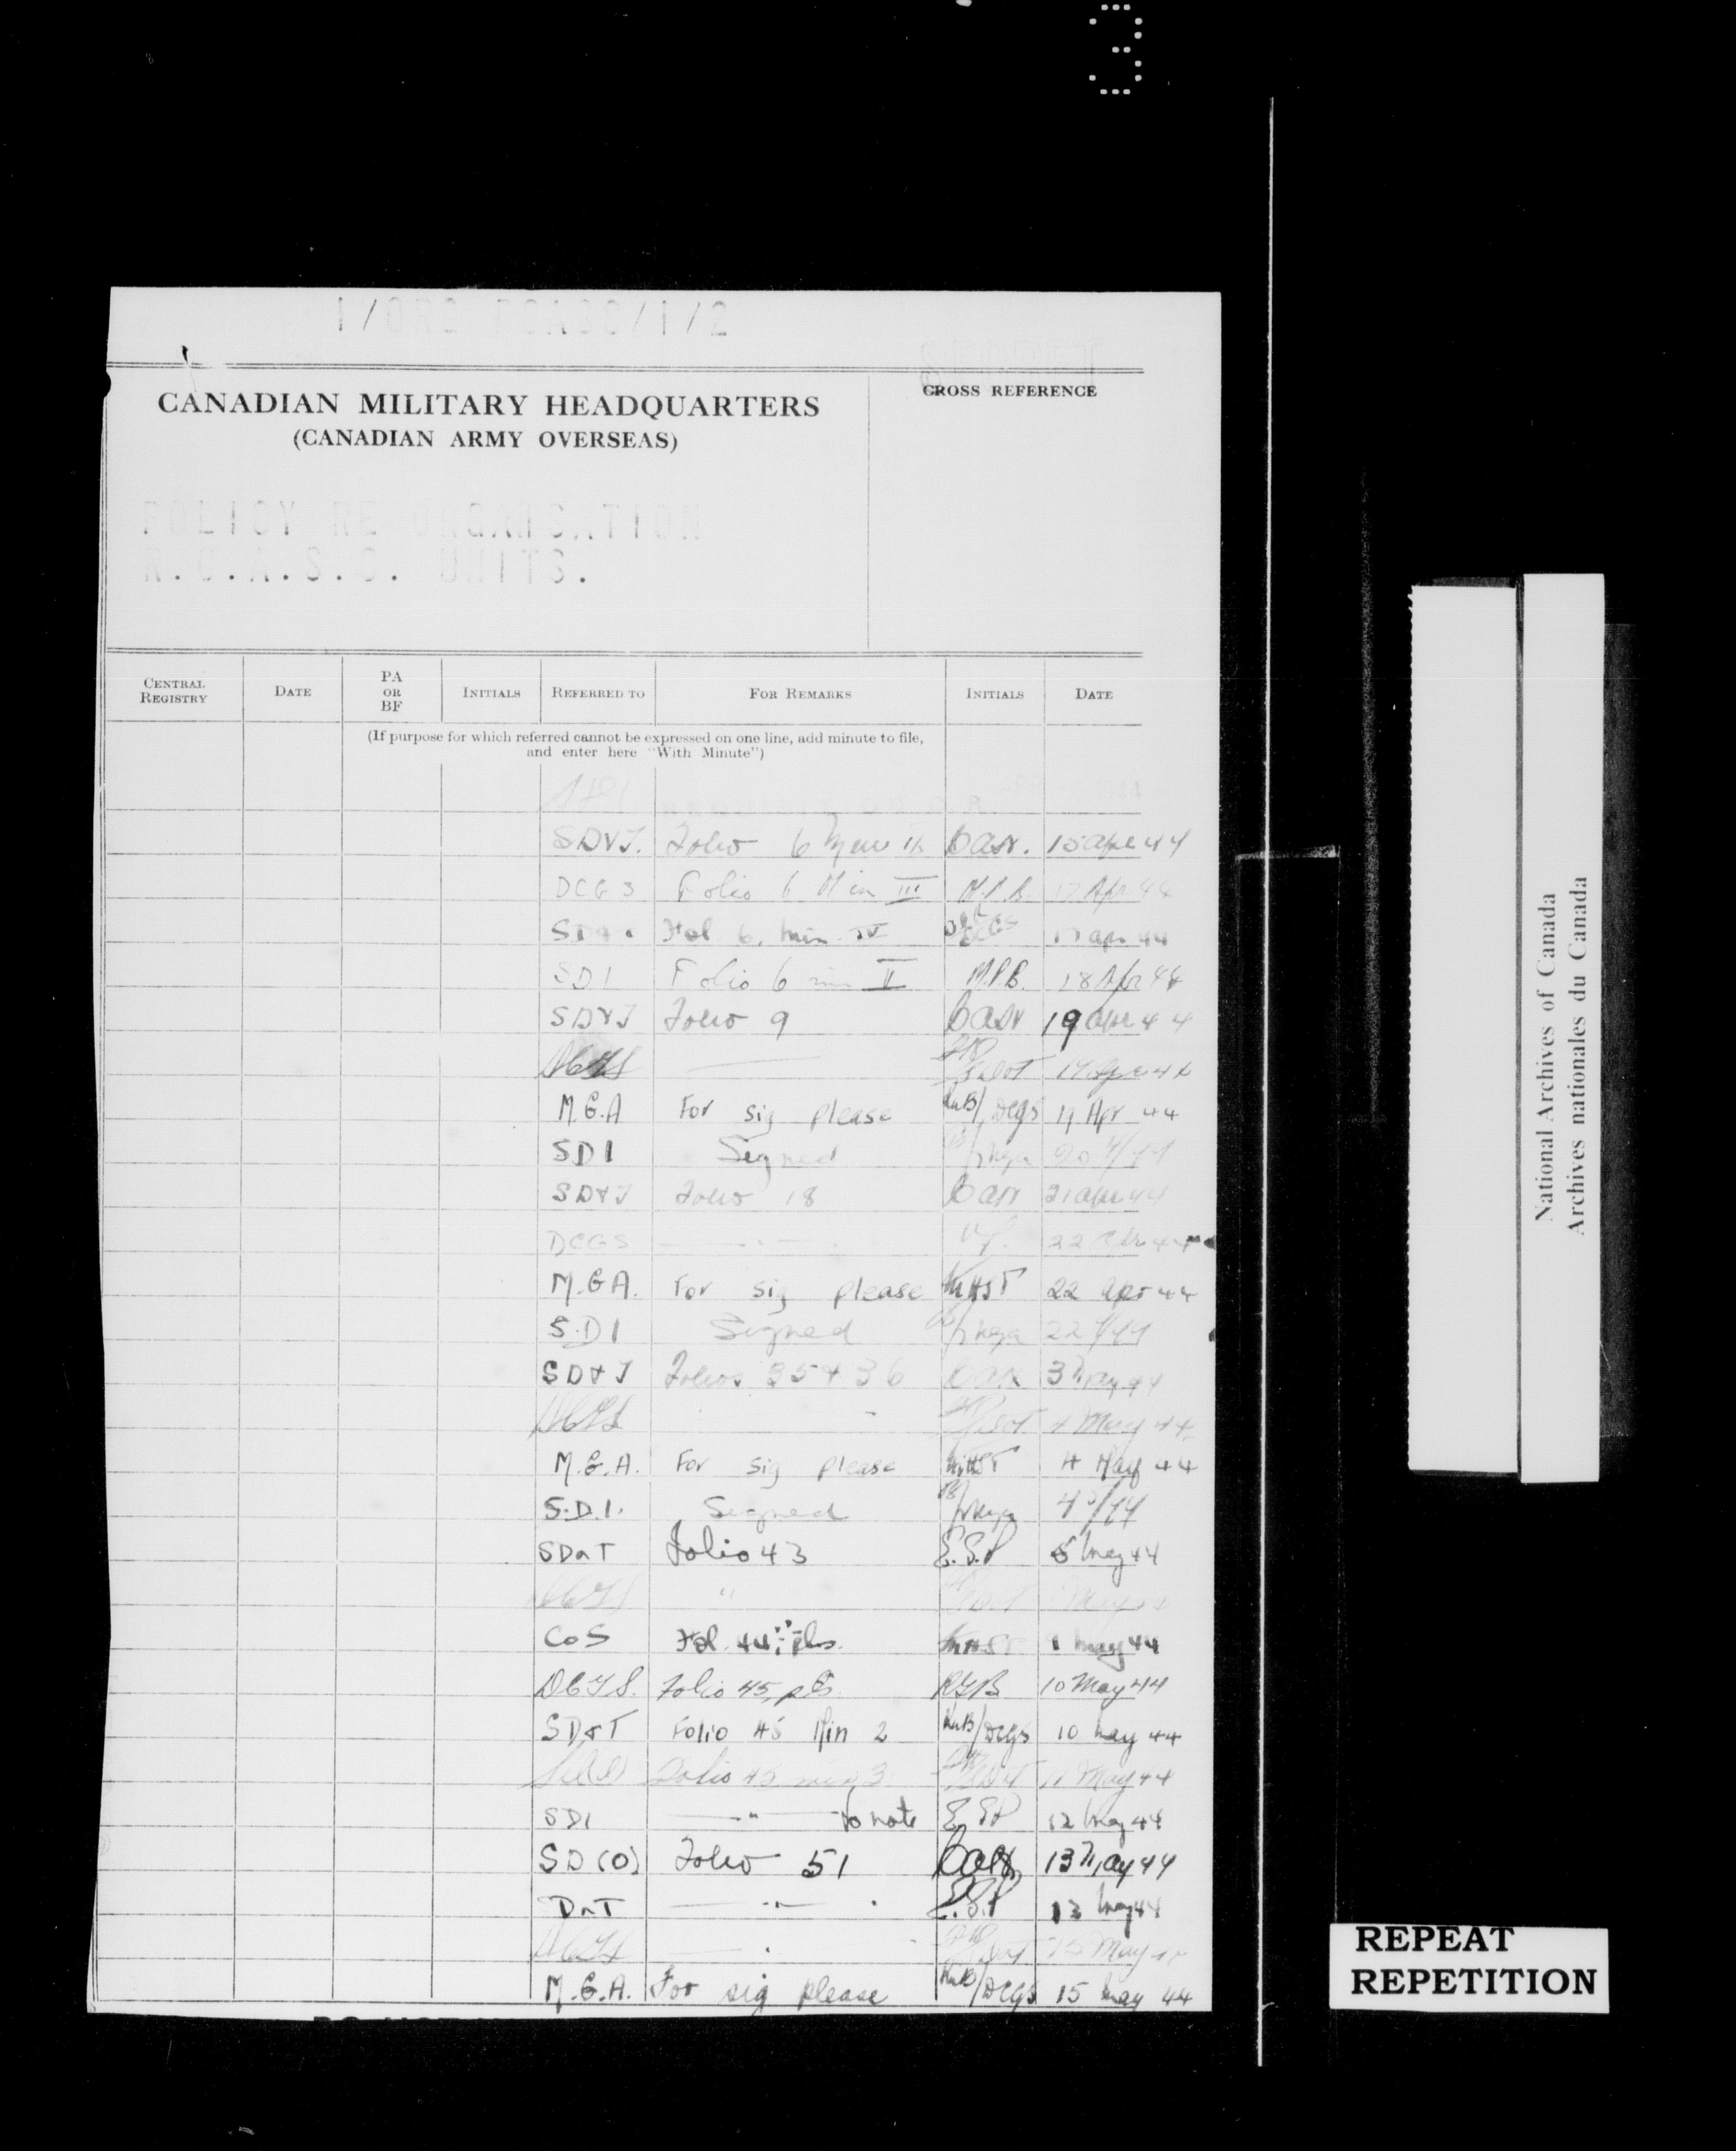 3
2/1/RCASC ORG/1
CANADIAN MILITARY HEADQUARTERS
(CANADIAN ARMY OVERSEAS)
CROSS REFERENCE
POLICY RE ORGANISATION
R.C.A.S.C. UNITS.
CENTRAL REGISTRY DATE PA OR BF INITIALS REFERRED TO FOR REMARKS INITIALS DATE
(If purpose for which referred cannot be expressed on one line, add minute to file,
and enter here "With Minute")
SD&T. Folio 6 15 Apr 44
DCGS Folio 6 Min III M.P.B. 17 Apr 44
Fol 6. min IV DCGS 17 apr 44
SD1 Folio 6 min II M.P.B. 18 Apr 44
SD&T Folio 9 19 Apr 44
DCGS —
M.G.A For sig please /DCGS Apr 44
SD1 Signed /mga 20 4/44
SD&T Folio 18 21 Apr 44
DCGS — " — 22 Apr 44
M.G.A. For sig please 22 Apr 44
S.D1 Signed /mga 22 4/44
SD&T Folios 35 + 36 3 May 44
DCGS 4 May 44
M.G.A. For sig please 4 May 44
S.D.1. Signed /mga 4 5/44
SD&T Folio 43 E.S.P 5 May 44
DCGS " May
CoS Fol 44 pls. May 44
DCGS. Folio 45, pls RGB 10 May 44
SD&T Folio 45 Min 2 /DCGS 10 May 44
Folio 45 min 3 11 May 44
SD1 — " — to note E.S.P 12 May 44
SD(O) Folio 51 13 May 44
D&T — " — E.S.P 13 May 44
DCGS — 15 May
M.G.A. For sig please /DCGS 15 May 44
National Archives of Canada
Archives nationales du Canada
REPEAT
REPETITION